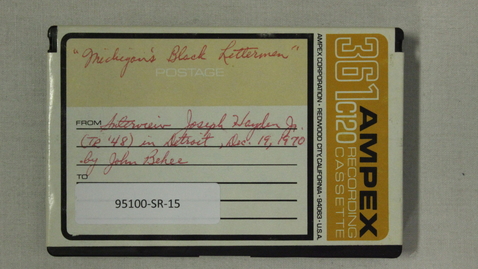 "Michigan's Black Lettermen"
POSTAGE
FROM Interview Joseph Hayden Jr.
(TR '48) in Detroit, Dec. 19, 1970
by John Behee
TO
95100-SR-15
AMPEX CORPORATION • REDWOOD CITY, CALIFORNIA • 94063 • U.S.A.
361 C120 RECORDING CASSETTE
AMPEX